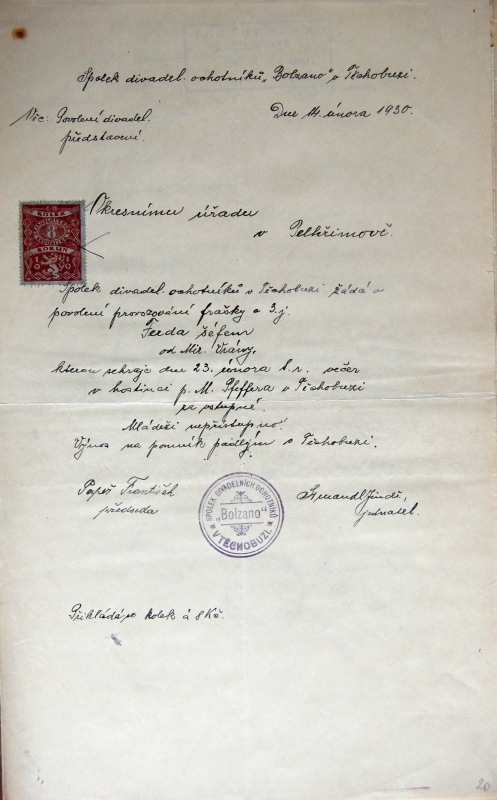 Spolek divadel. ochotníků „Bolzano" v Těchobuzi.
Dne 14. února 1930.
Věc: Povolení divadel.
představení.
KOLEK
8
KORUN
Okresnímu úřadu
v Pelhřimově.
Spolek divadel. ochotníků v Těchobuzi žádá o
povolení provozování frašky o 3. j.
Ferda šéfem
od Mir. Vrány,
kterou sehraje dne 23. února t. r. večer
v hostinci p. M. Pfeffera v Těchobuzi
za vstupné.
Mládeži nepřístupno.
Výnos na pomník padlým v Těchobuzi.
František
předseda
SPOLEK DIVADELNÍCH OCHOTNÍKŮ
„Bolzano"
V TĚCHOBUZI.
jednatel.
Přikládá se kolek á 8 Kč.
20